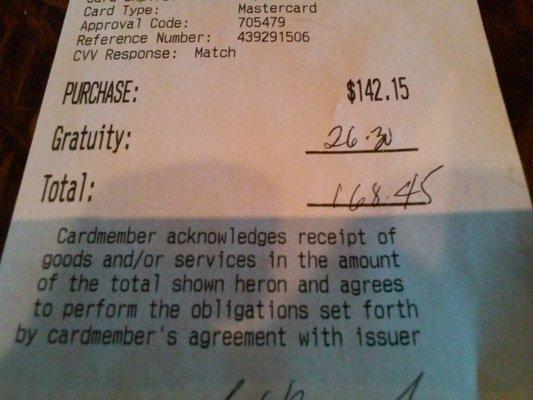 Card Type: Mastercard
Approval Code: 705479
Reference Number: 439291506
CVV Response: Match
PURCHASE: $142.15
Gratuity: 26.30
Total: 168.45
Cardmember acknowledges receipt of
goods and/or services in the amount
of the total shown heron and agrees
to perform the obligations set forth
by cardmember's agreement with issuer